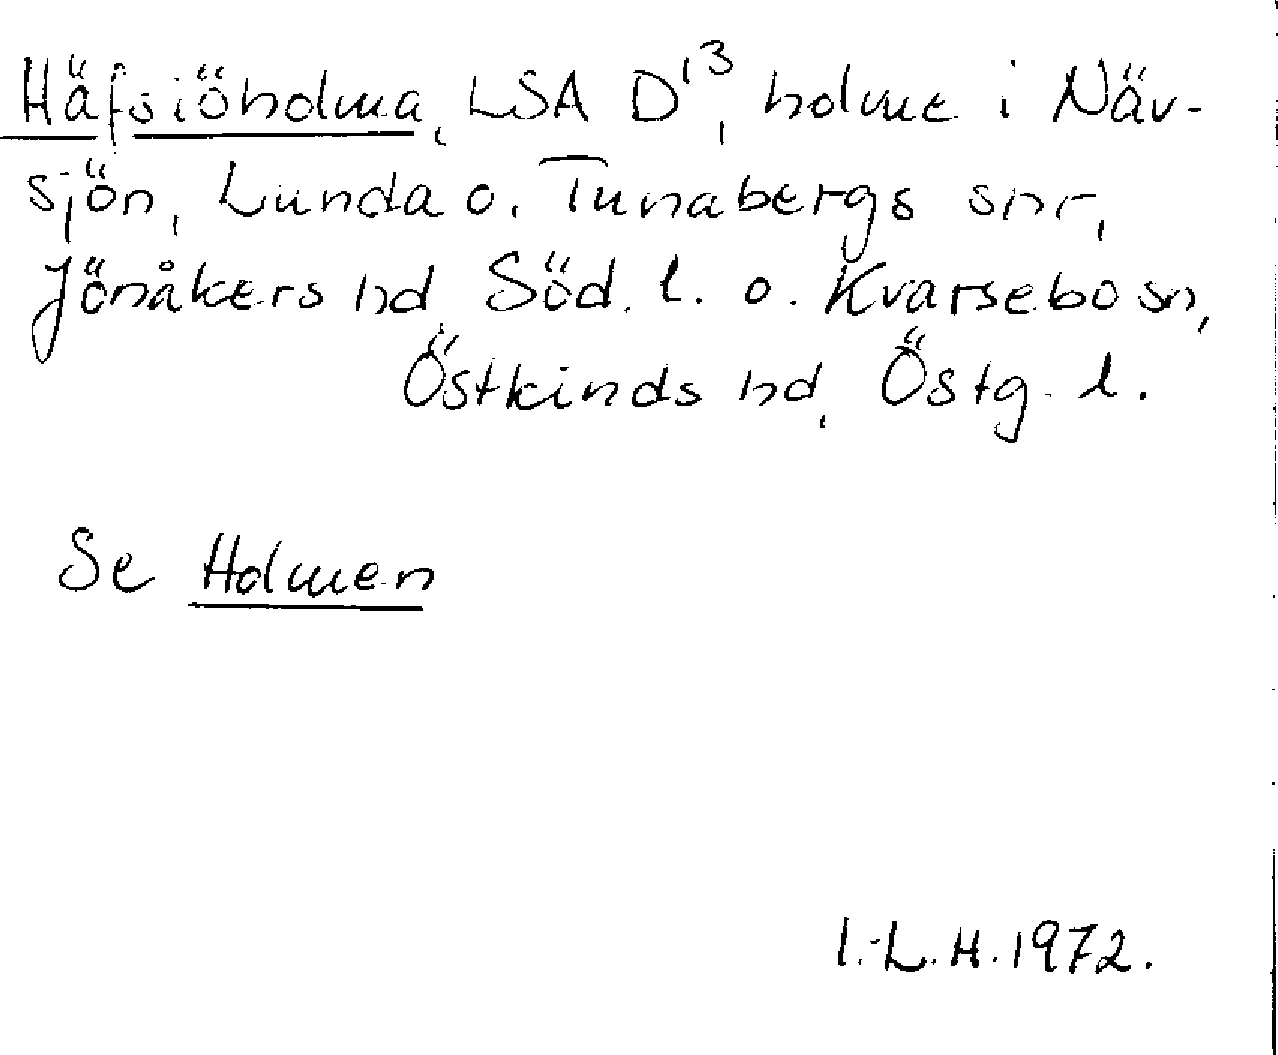 Häfsiöholma, LSA D¹³, holme i Näv-
sjön, Lunda o. Tunabergs snr,
Jönåkers hd, Söd. l. o. Kvarsebo sn,
Östkinds hd, Östg. l.
Se Holmen
I.-L.H. 1972.